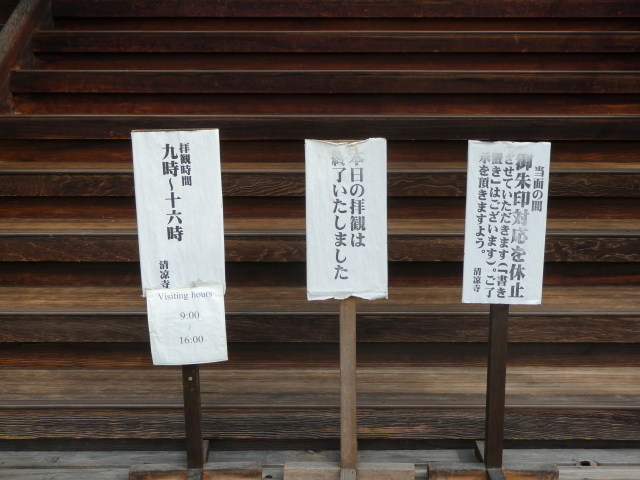 拝観時間
九時～十六時
清凉寺
Visiting hours
9:00
/
16:00
本日の拝観は
終了いたしました
当面の間
御朱印対応を休止
させていただきます（「書き
置き」はございます）。ご了
承を頂きますよう。
清凉寺